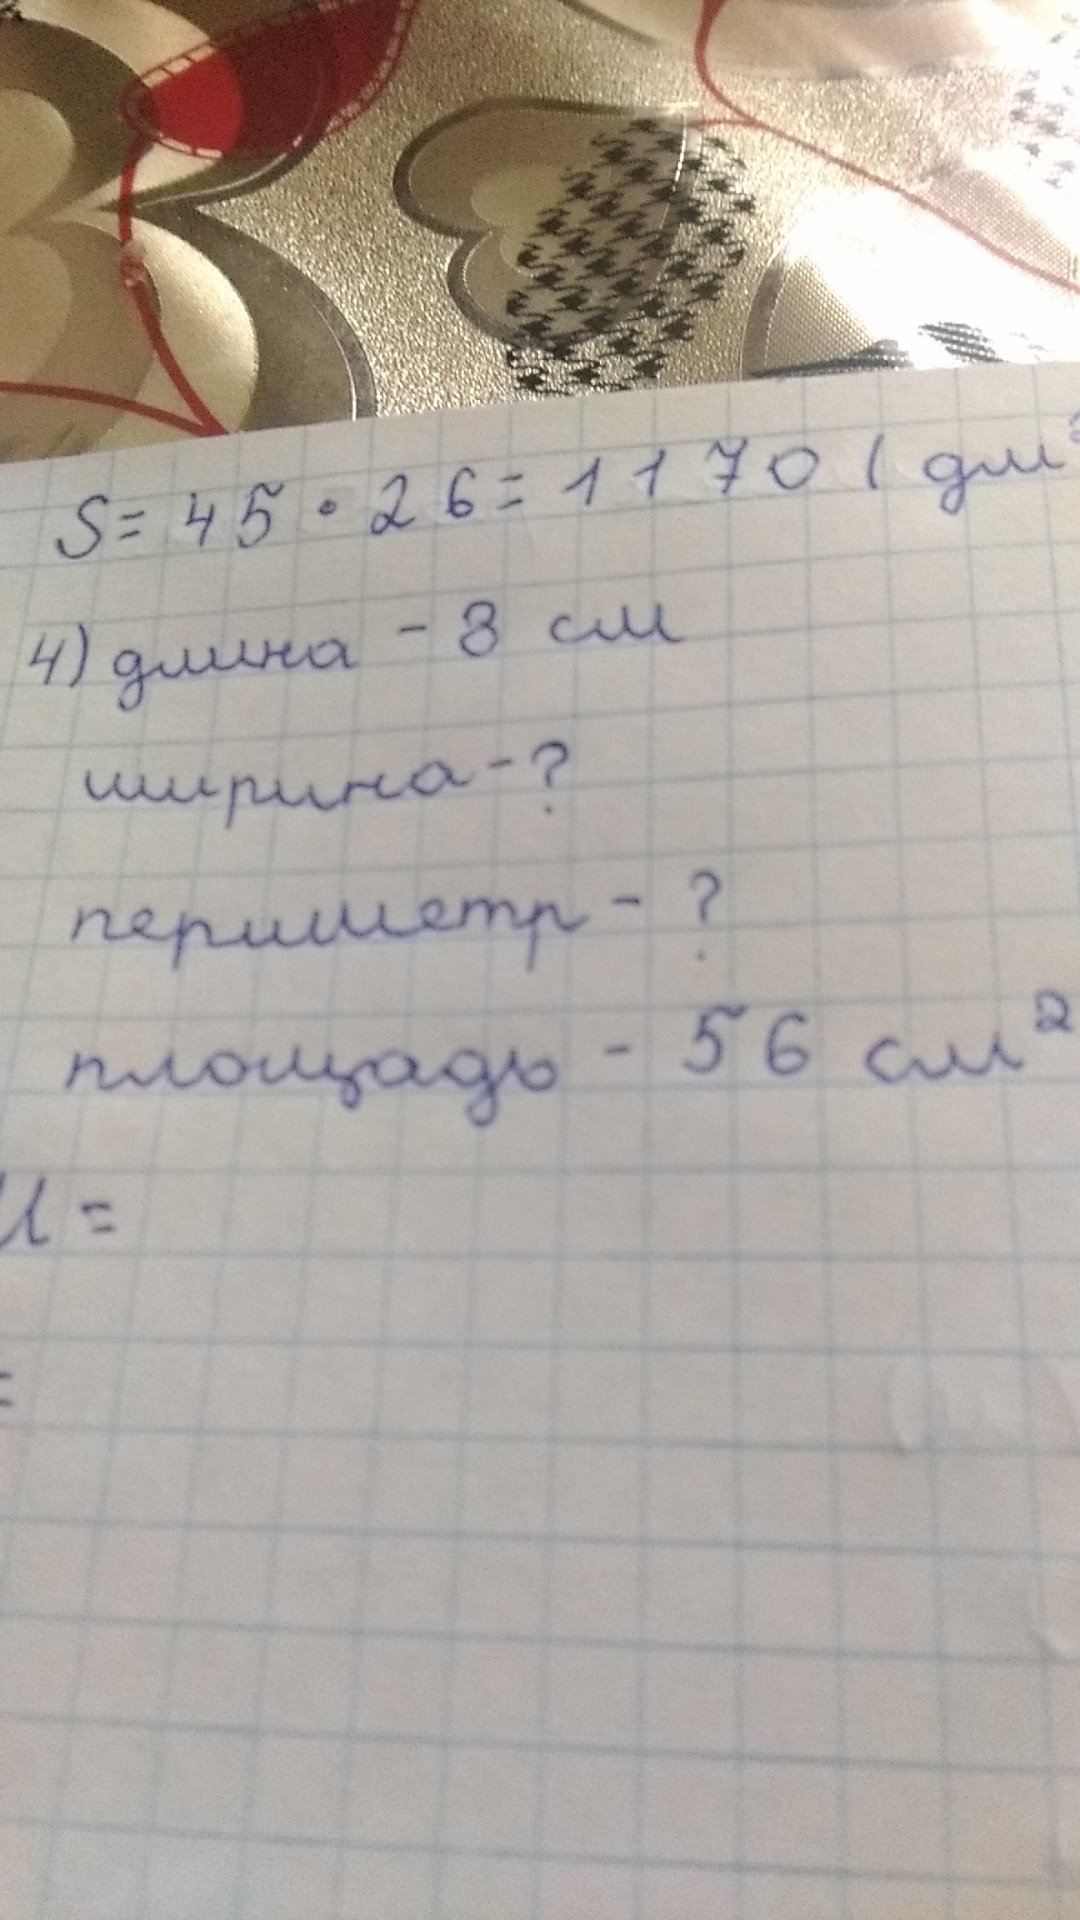 S = 45 · 26 = 1170 (дм²
4) длина - 8 см
ширина - ?
периметр - ?
площадь - 56 см²
=
=